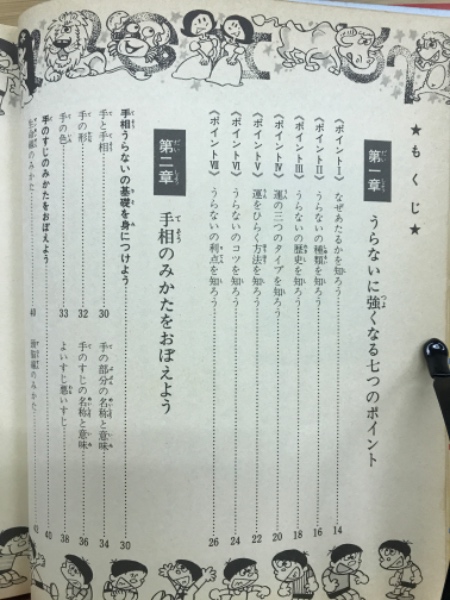 ★もくじ★
第一章 うらないに強くなる七つのポイント
《ポイントⅠ》 なぜあたるかを知ろう 14
《ポイントⅡ》 うらないの種類を知ろう 16
《ポイントⅢ》 うらないの歴史を知ろう 18
《ポイントⅣ》 運の三つのタイプを知ろう 20
《ポイントⅤ》 運をひらく方法を知ろう 22
《ポイントⅥ》 うらないのコツを知ろう 24
《ポイントⅦ》 うらないの利点を知ろう 26
第二章 手相のみかたをおぼえよう
手相うらないの基礎を身につけよう 30
手と手相 30
手の部分の名称と意味 34
手の形 32
手のすじの名称と意味 36
手の色 33
よいすじ悪いすじ 38
手のすじのみかたをおぼえよう 40
生命線のみかた 40
頭脳線のみかた 42